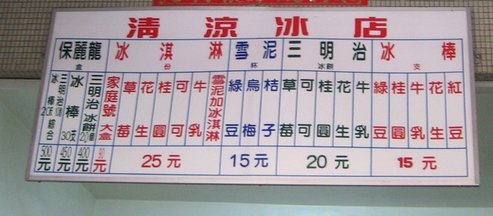 清涼冰店
保麗龍
盒
冰淇淋
份
雪泥
杯
三明治
冰餅
冰棒
支
冰棒
綜合
三明治
冰棒30支
三明治冰餅
家庭號大盒
草莓
花生
桂圓
可可
牛乳
雪泥加冰淇淋
綠豆
烏梅
桔子
草莓
花生
桂圓
可可
牛乳
綠豆
桂圓
牛乳
花生
紅豆
500元
450元
400元
25元
15元
20元
15元